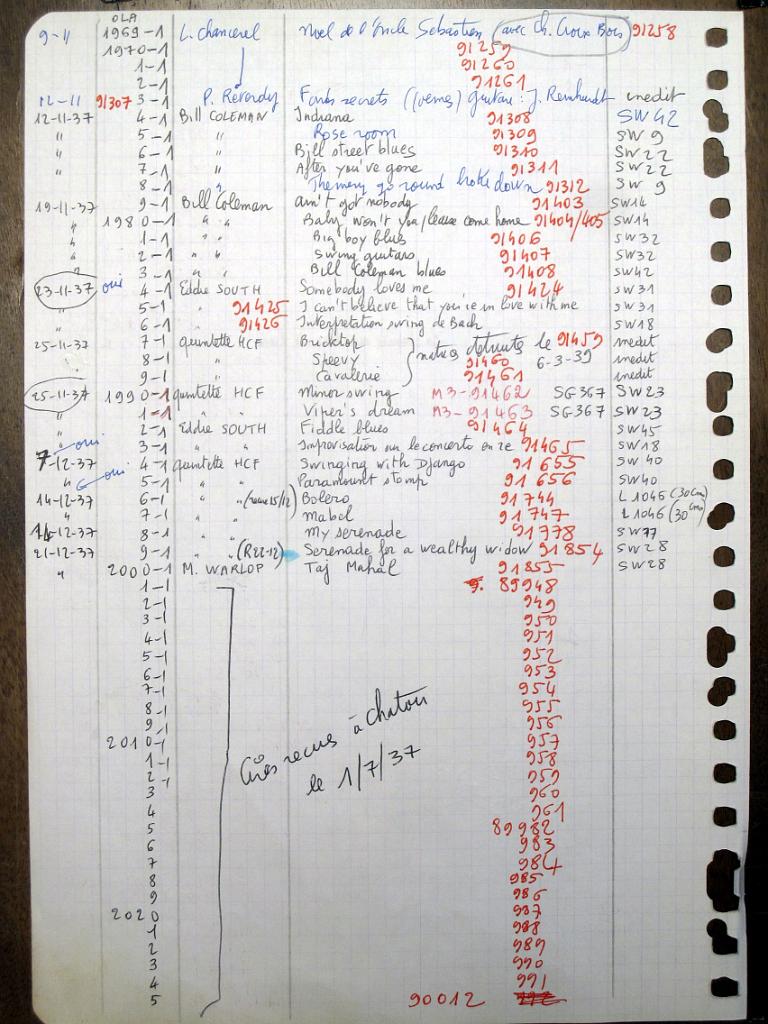 OLA
9-11 1969-1 L. Chancerel Noel de l'Oncle Sebastien (avec Ch. Croix Bois) 91258
1970-1 91259
1-1 91260
2-1 91261
12-11 91307 3-1 P. Reverdy Fonds secrets (poemes) guitare: J. Reinhardt inedit
12-11-37 4-1 Bill COLEMAN Indiana 91308 SW42
" 5-1 " Rose room 91309 SW9
" 6-1 " Bill street blues 91310 SW22
" 7-1 " After you've gone 91311 SW22
8-1 " The merry go round broke down 91312 SW 9
19-11-37 9-1 Bill Coleman ain't got nobody 91403 SW14
" 1980-1 " " Baby won't you please come home 91404/405 SW14
" 1-1 " " Big boy blues 91406 SW32
" 2-1 " " Swing guitars 91407 SW32
" 3-1 " " Bill Coleman blues 91408 SW42
23-11-37 oui 4-1 Eddie SOUTH Somebody loves me 91424 SW31
" 5-1 " 91425 I can't believe that you're in love with me SW31
" 6-1 " 91426 Interpretation swing de Bach SW18
25-11-37 7-1 quintette HCF Bricktop matrices détruites le 91459 inedit
8-1 " Speevy 91460 6-3-39 inedit
9-1 " Cavalerie 91461 inedit
25-11-37 1990-1 quintette HCF Minor swing M3-91462 SG367 SW23
" 1-1 " " Viper's dream M3-91463 SG367 SW23
" 2-1 Eddie SOUTH Fiddle blues 91464 SW45
" oui 3-1 " " Improvisation sur le concerto en re 91465 SW18
7-12-37 4-1 quintette HCF Swinging with Django 91655 SW40
" oui 5-1 " " Paramount stomp 91656 SW40
14-12-37 6-1 " " (recue 15/12) Bolero 91744 L1046 (30cm)
" 7-1 " " Mabel 91747 L1046 (30cms)
12-37 8-1 " " My serenade 91778 SW77
21-12-37 9-1 " " (R22-12) Serenade for a wealthy widow 91854 SW28
" 2000-1 M. WARLOP Taj Mahal 91855 SW28
1-1 89948
2-1 949
3-1 950
4-1 951
5-1 952
6-1 953
7-1 954
8-1 955
9-1 956
2010-1 957
1-1 958
2-1 959
3 960
4 961
5 89982
6 983
7 984
8 985
9 986
2020 987
1 988
2 989
3 990
4 991
5 90012
Cires recues à Chatou
le 1/7/37